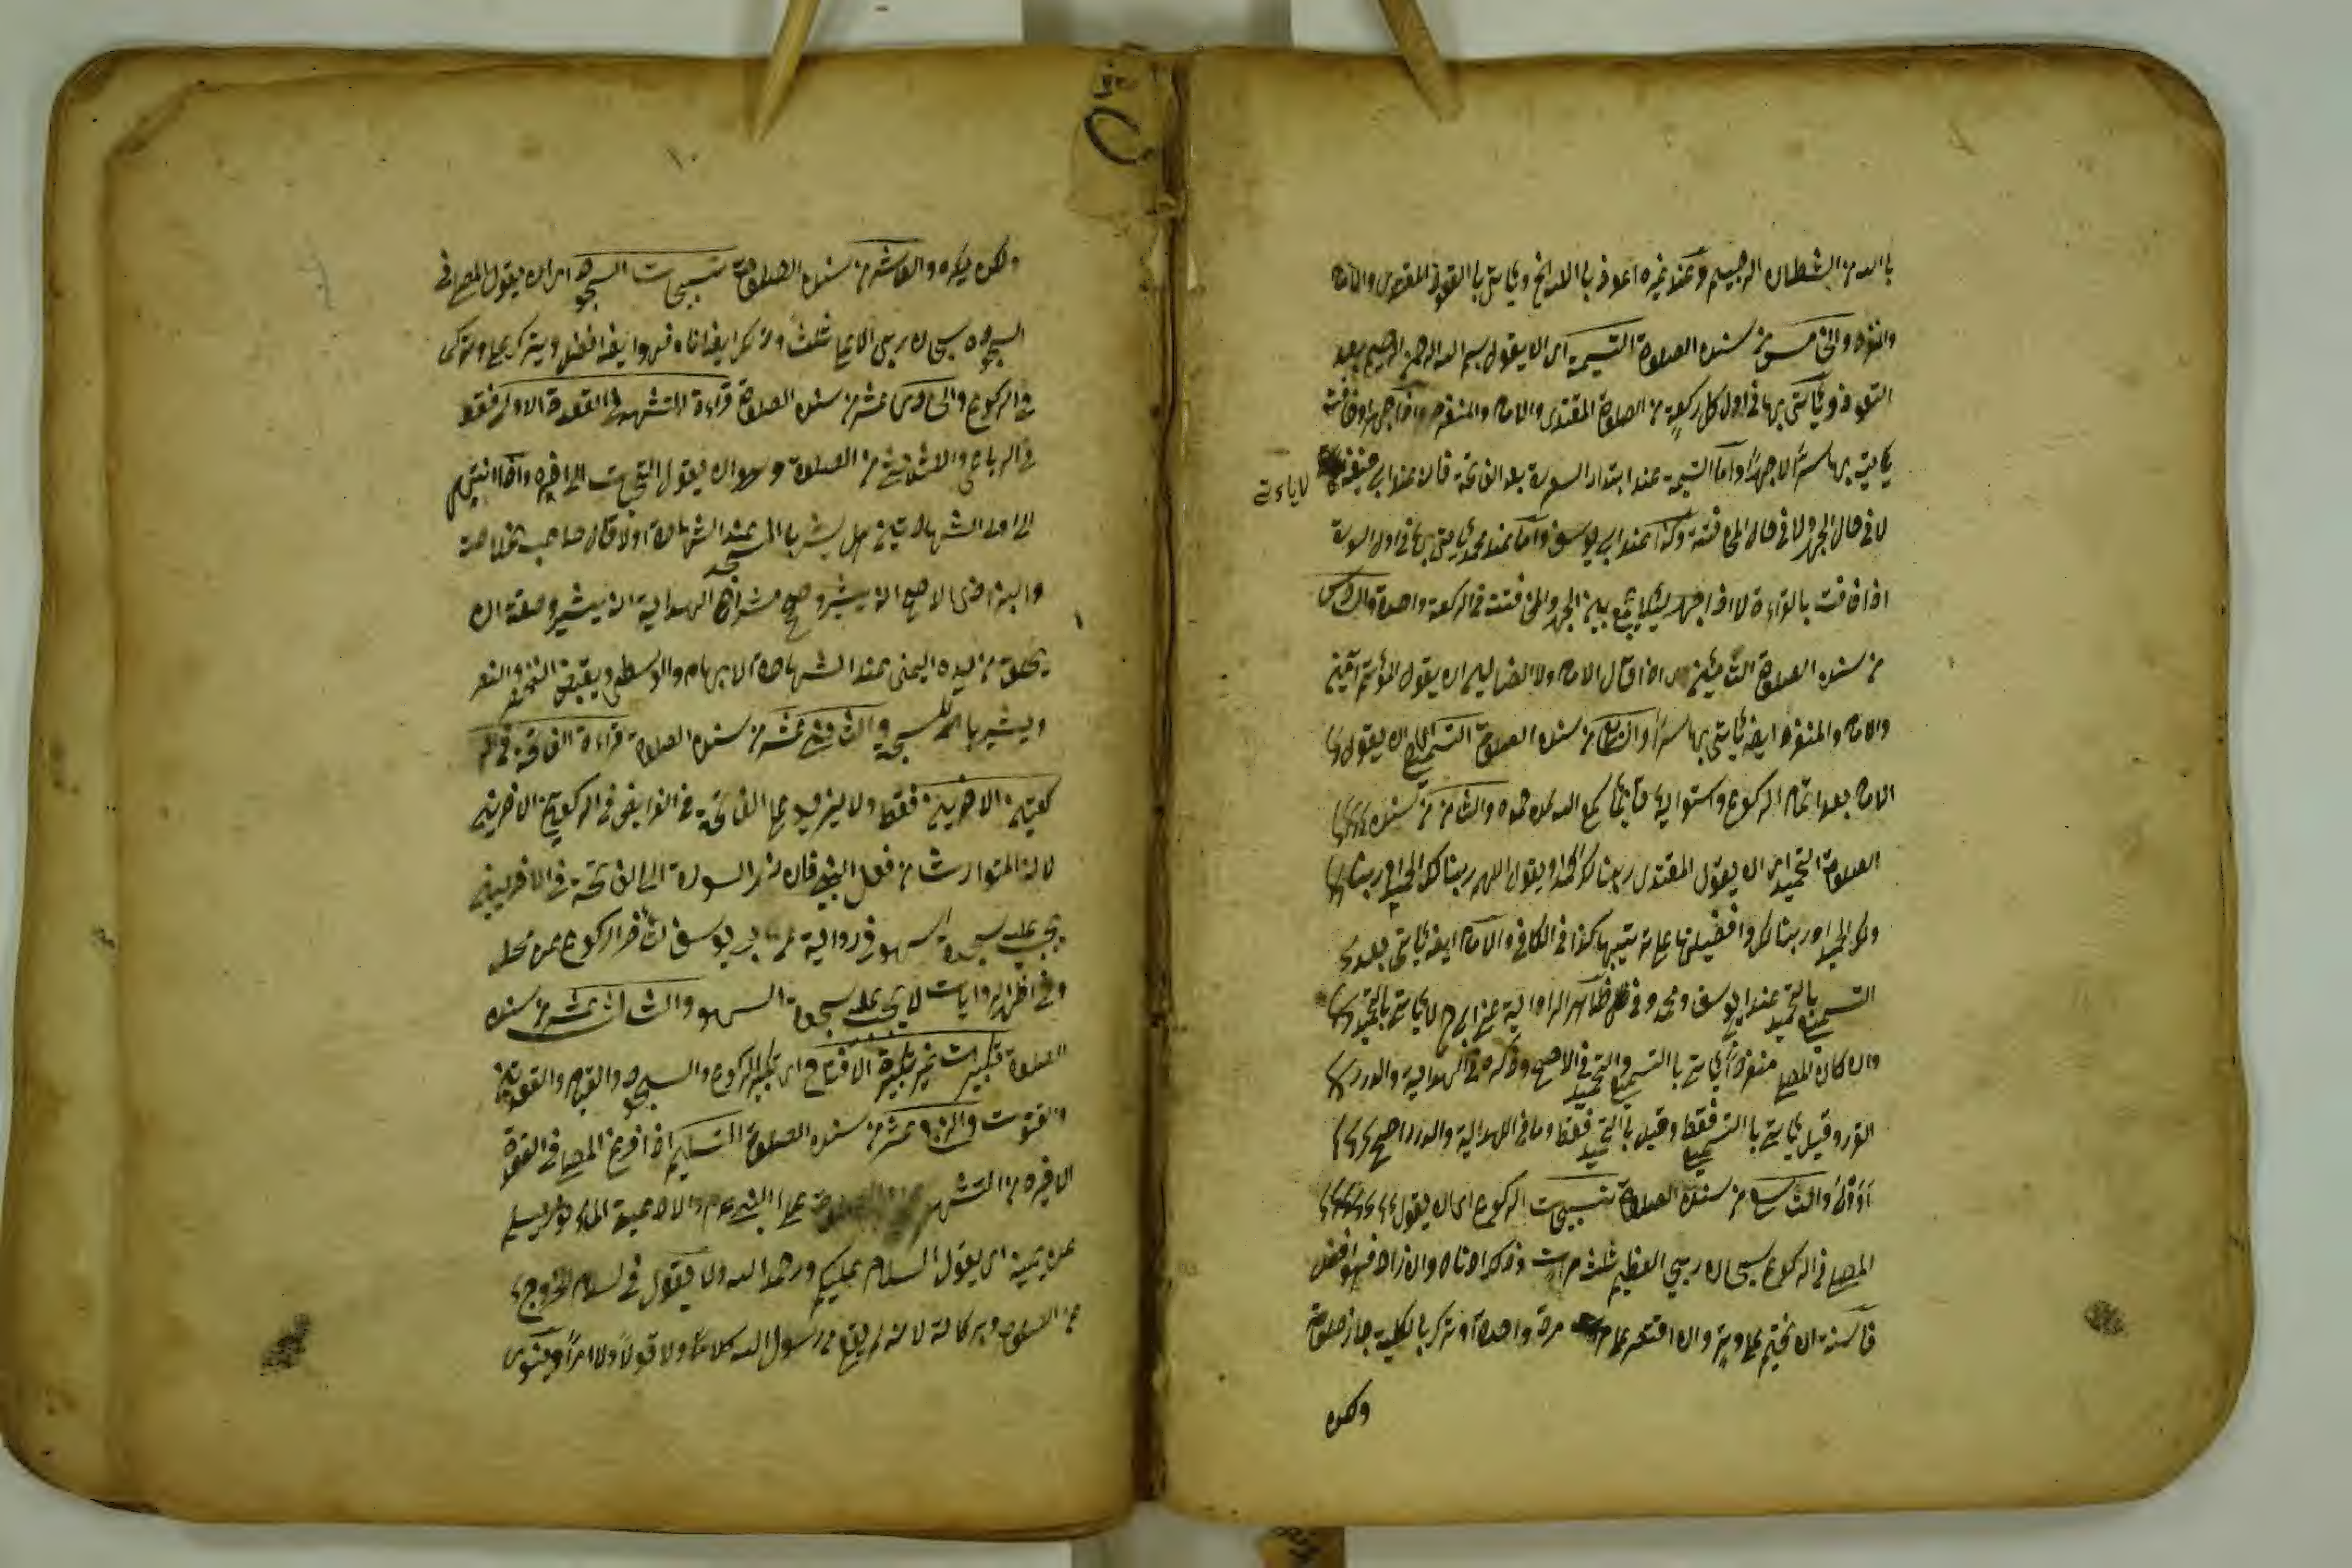 بالله من الشيطان الرجيم وعند غيره اعوذ بالله الخ ويأتي بالتعوذ المقتدي والامام
والمنفرد والخامس من سنن الصلوة التسمية اي ان يقول بسم الله الرحمن الرحيم بعد
التعوذ ويأتي بها في اول كل ركعة من الصلوة المقتدي والامام والمنفرد واذا جهر او خافت
يأتي بها سرا لا جهرا واما التسمية عند ابتداء السورة بعد الفاتحة فان عند ابي حنيفة
لا يأتي
لا في حال الجهر ولا في حال المخافتة وكذا عند ابي يوسف واما عند محمد يأتي بها في اول السورة
اذا خافت بالقراءة لا اذا جهر لئلا يجمع بين الجهر والمخافتة في الركعة واحدة والسادس
من سنن الصلوة التأمين اي اذا قال الامام ولا الضالين ان يقول المؤتم آمين
والامام والمنفرد ايضا يأتي بها سرا والسابع من سنن الصلوة التسميع اي ان يقول
الامام بعد اتمام الركوع واستوائه قايما سمع الله لمن حمده والثامن من سنن
الصلوة التحميد اي ان يقول المقتدي ربنا لك الحمد او يقول اللهم ربنا لك الحمد او ربنا
ولك الحمد او ربنا لك وافضليتها على ترتيبها كذا في الكافي والامام ايضا يأتي بعد
التسميع بالتحميد عند ابي يوسف ومحمد وفي ظاهر الرواية عن ابي ح لا يأتي بالتحميد
وان كان المصلي منفردا يأتي بالتسميع والتحميد في الاصح وذكره في الهداية والدرر
الغرر وقيل يأتي بالتسميع فقط وقيل بالتحميد فقط وما في الهداية والدرر اصح
والتاسع من سنن الصلوة تسبيحات الركوع اي ان يقول
المصلي في الركوع سبحان ربي العظيم ثلث مرات وذلك ادناه وان زاد فهو افضل
فالسنة ان يختم على وتر وان اقتصر على مرة واحدة او ترك بالكلية جاز صلوته
ولكن
١٠
ولكن يكره والعاشر من سنن الصلوة تسبيحات السجود اي ان يقول المصلي في
السجود سبحان ربي الاعلى ثلث
في الركوع والحادي عشر من سنن الصلوة قراءة التشهد في القعدة الاولى فقط
في الرباعي والثلاثي من الصلوة وهو ان يقول التحيات الى اخره واذا انتهى
الى اول الشهادتين هل يشير بالمسبحة عند الشهادة او لا قال صاحب خلاصة
والبزازي الاصح ان يشير وصحح شراح الهداية ان يشير وصفة ان
يحلق من يده اليمنى عند الشهادة الابهام والوسطى ويقبض الخنصر والبنصر
ويشير بالمسبحة والثاني عشر من سنن الصلوة قراءة الفاتحة في الر
كعتين الاخريين فقط ولا يزيد على الفاتحة في الفرايض في الركعتين الاخريين
لانه المتوارث من فعل النبي فان ضم السورة الى الفاتحة في الاخريين
يجب عليه سجدة السهو في رواية عن ابي يوسف لتأخر الركوع عن محله
وفي اظهر الروايات لا يجب عليه سجدة السهو والثالث عشر من سنن
الصلوة تكبيرات غير تكبيرة الافتتاح اي تكبير الركوع والسجود والقيام والقعدتين
والقنوت والرابع عشر من سنن الصلوة التسليم اذا فرغ المصلي في القعدة
الاخيرة من التشهد والصلوة على النبي عم والادعية المأثورة يسلم
عن يمينه اي يقول السلام عليكم ورحمة الله ولا يقول في السلام للخروج
عن الصلوة وبركاته لانه لم يقع من رسول الله كلاما ولا قولا ولا امرا وينوي